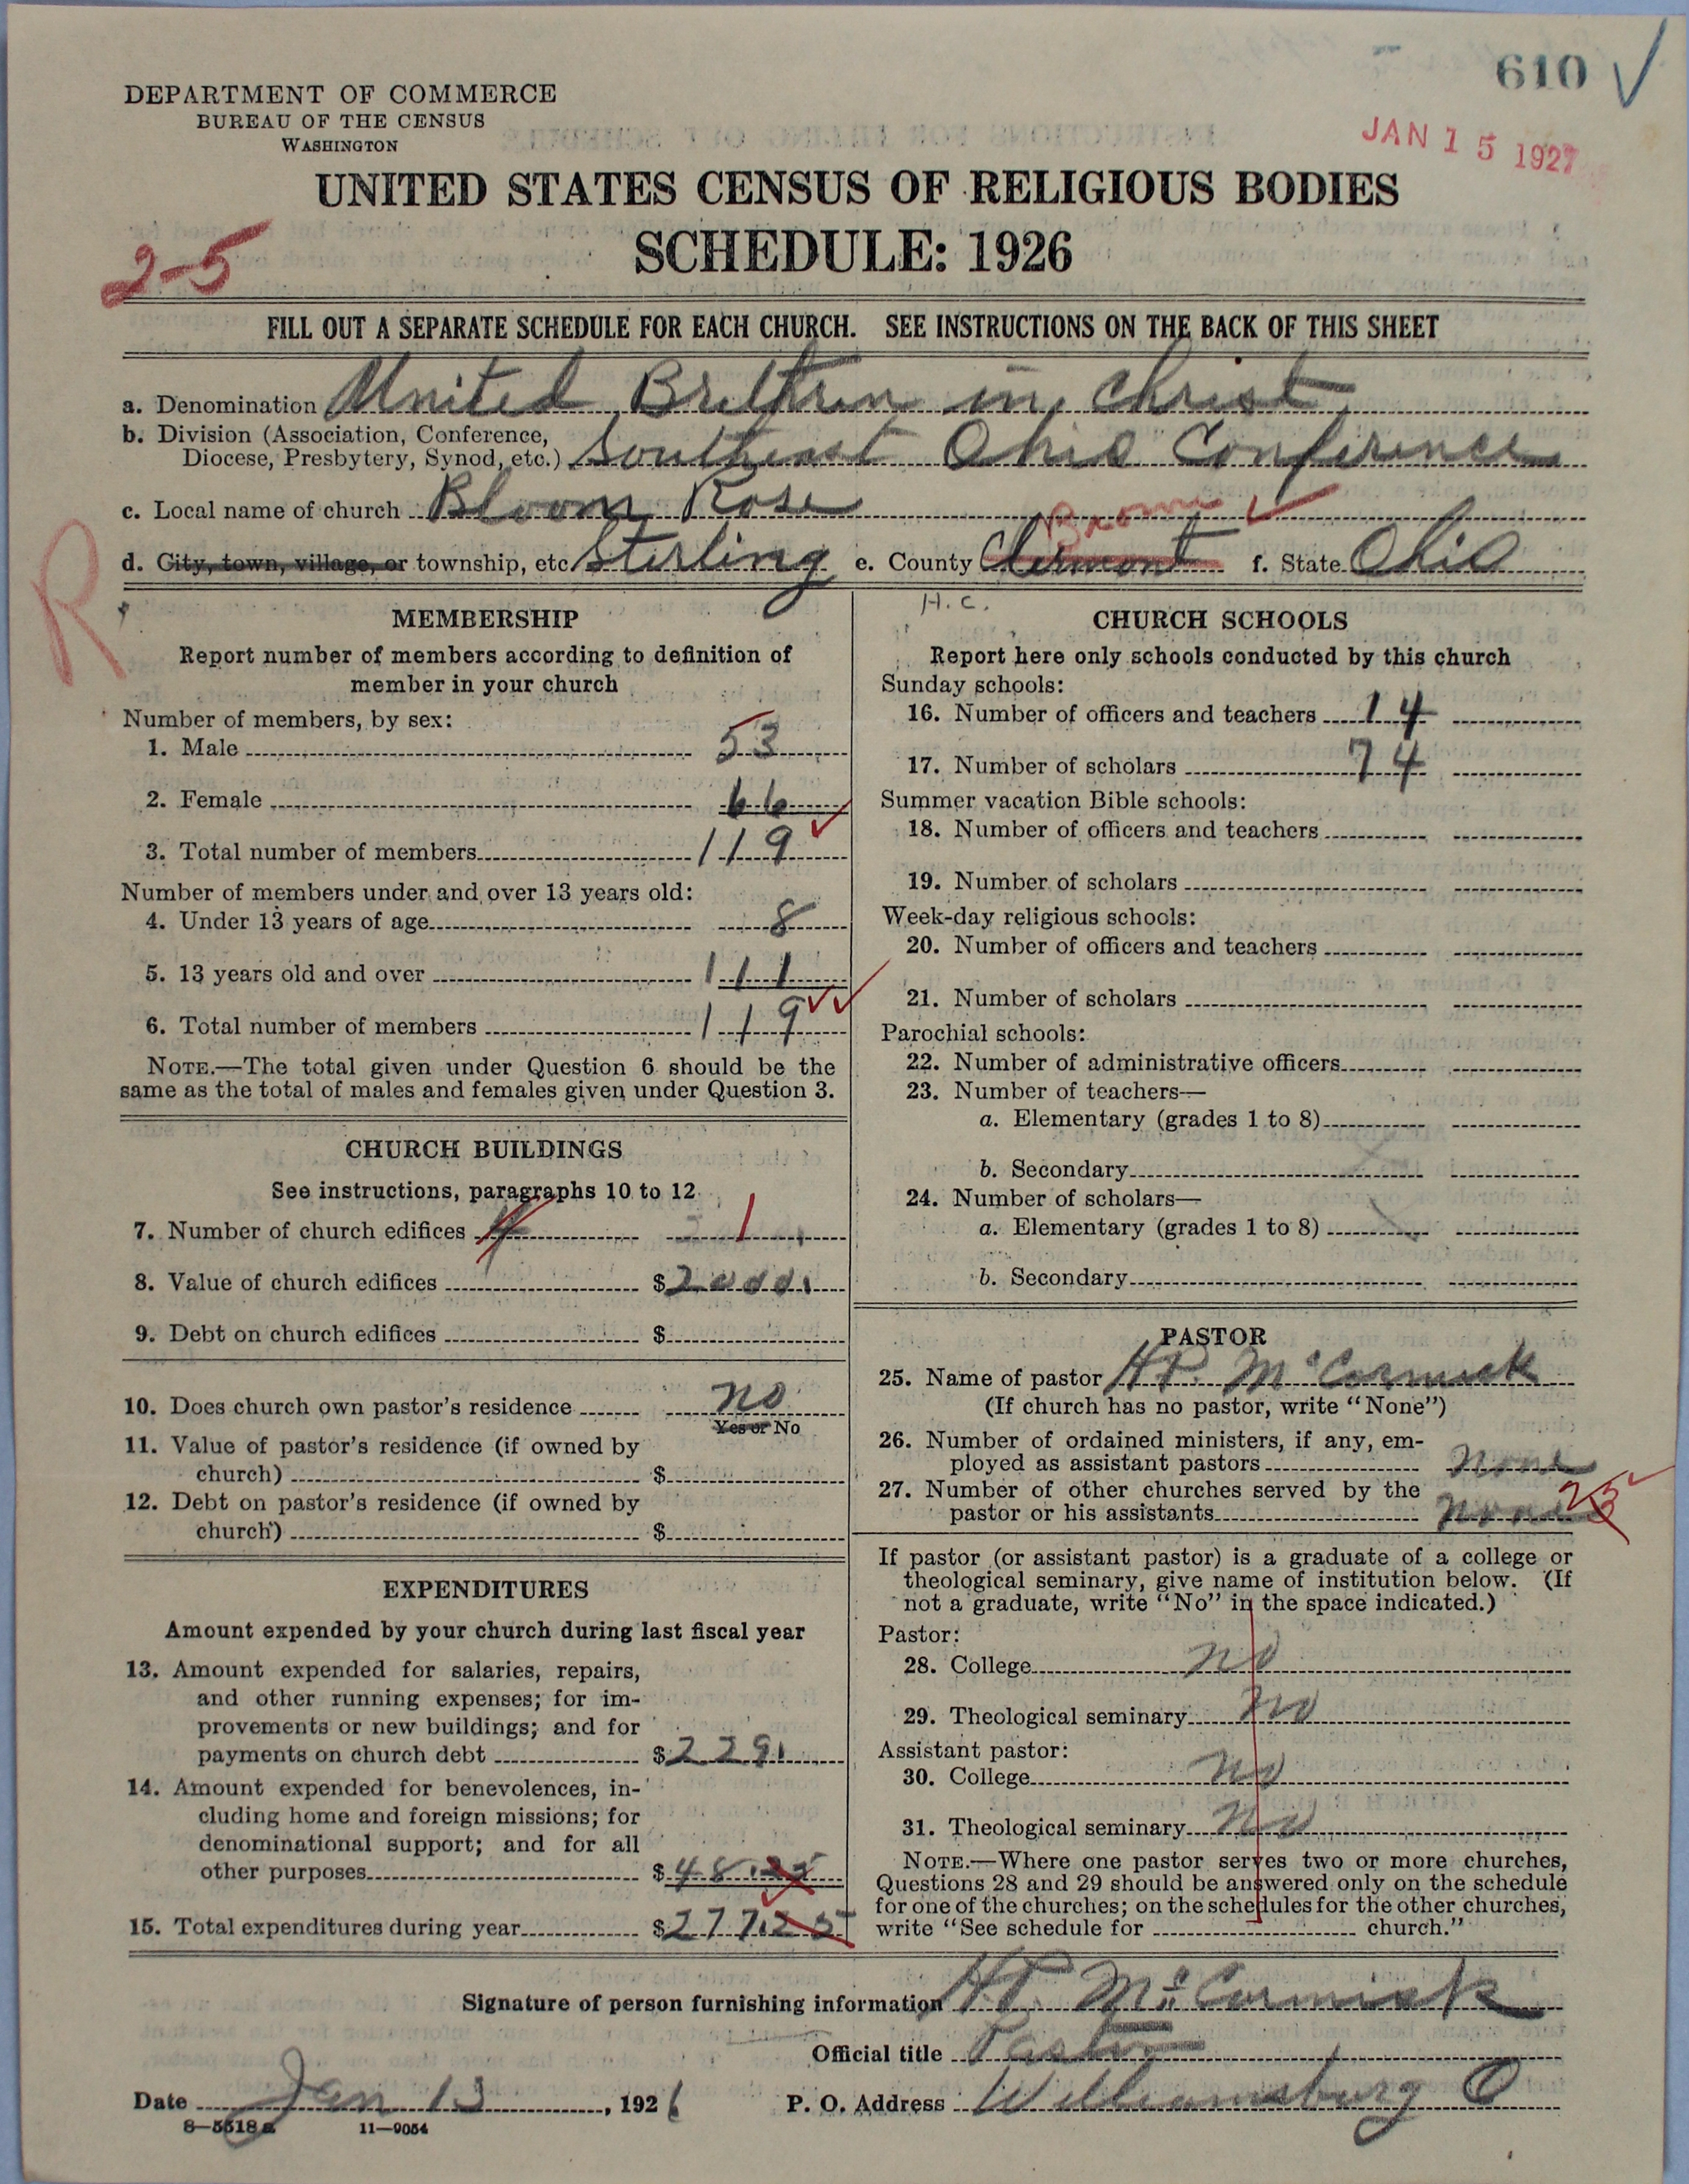 610 ✓
DEPARTMENT OF COMMERCE
BUREAU OF THE CENSUS
WASHINGTON
JAN 15 1927
UNITED STATES CENSUS OF RELIGIOUS BODIES
SCHEDULE: 1926
2-5
FILL OUT A SEPARATE SCHEDULE FOR EACH CHURCH. SEE INSTRUCTIONS ON THE BACK OF THIS SHEET
a. Denomination United Brethren in Christ
b. Division (Association, Conference,
Diocese, Presbytery, Synod, etc.) Southeast Ohio Conference
c. Local name of church Bloom Rose
Brown ✓
d. City, town, village, or township, etc. Sterling e. County Clermont f. State Ohio
R
H.C.
MEMBERSHIP
Report number of members according to definition of
member in your church
Number of members, by sex:
1. Male 53
2. Female 66
3. Total number of members 119 ✓
Number of members under and over 13 years old:
4. Under 13 years of age 8
5. 13 years old and over 111
6. Total number of members 119 ✓✓
NOTE.—The total given under Question 6 should be the
same as the total of males and females given under Question 3.
CHURCH BUILDINGS
See instructions, paragraphs 10 to 12
7. Number of church edifices 1
8. Value of church edifices $2000.
9. Debt on church edifices $
10. Does church own pastor's residence no
Yes or No
11. Value of pastor's residence (if owned by
church) $
12. Debt on pastor's residence (if owned by
church) $
EXPENDITURES
Amount expended by your church during last fiscal year
13. Amount expended for salaries, repairs,
and other running expenses; for im-
provements or new buildings; and for
payments on church debt $229.
14. Amount expended for benevolences, in-
cluding home and foreign missions; for
denominational support; and for all
other purposes $48.25
15. Total expenditures during year $277.25
CHURCH SCHOOLS
Report here only schools conducted by this church
Sunday schools:
16. Number of officers and teachers 14
17. Number of scholars 74
Summer vacation Bible schools:
18. Number of officers and teachers
19. Number of scholars
Week-day religious schools:
20. Number of officers and teachers
21. Number of scholars
Parochial schools:
22. Number of administrative officers
23. Number of teachers—
a. Elementary (grades 1 to 8)
b. Secondary
24. Number of scholars—
a. Elementary (grades 1 to 8)
b. Secondary
PASTOR
25. Name of pastor H.P. McCormick
(If church has no pastor, write "None")
26. Number of ordained ministers, if any, em-
ployed as assistant pastors none
27. Number of other churches served by the
pastor or his assistants none 2
If pastor (or assistant pastor) is a graduate of a college or
theological seminary, give name of institution below. (If
not a graduate, write "No" in the space indicated.)
Pastor:
28. College no
29. Theological seminary no
Assistant pastor:
30. College no
31. Theological seminary no
NOTE.—Where one pastor serves two or more churches,
Questions 28 and 29 should be answered only on the schedule
for one of the churches; on the schedules for the other churches,
write "See schedule for church."
Signature of person furnishing information H.P. McCormick
Official title Pastor
Date Jan 13, 1926 P. O. Address Williamsburg O
8—5518a 11—9054